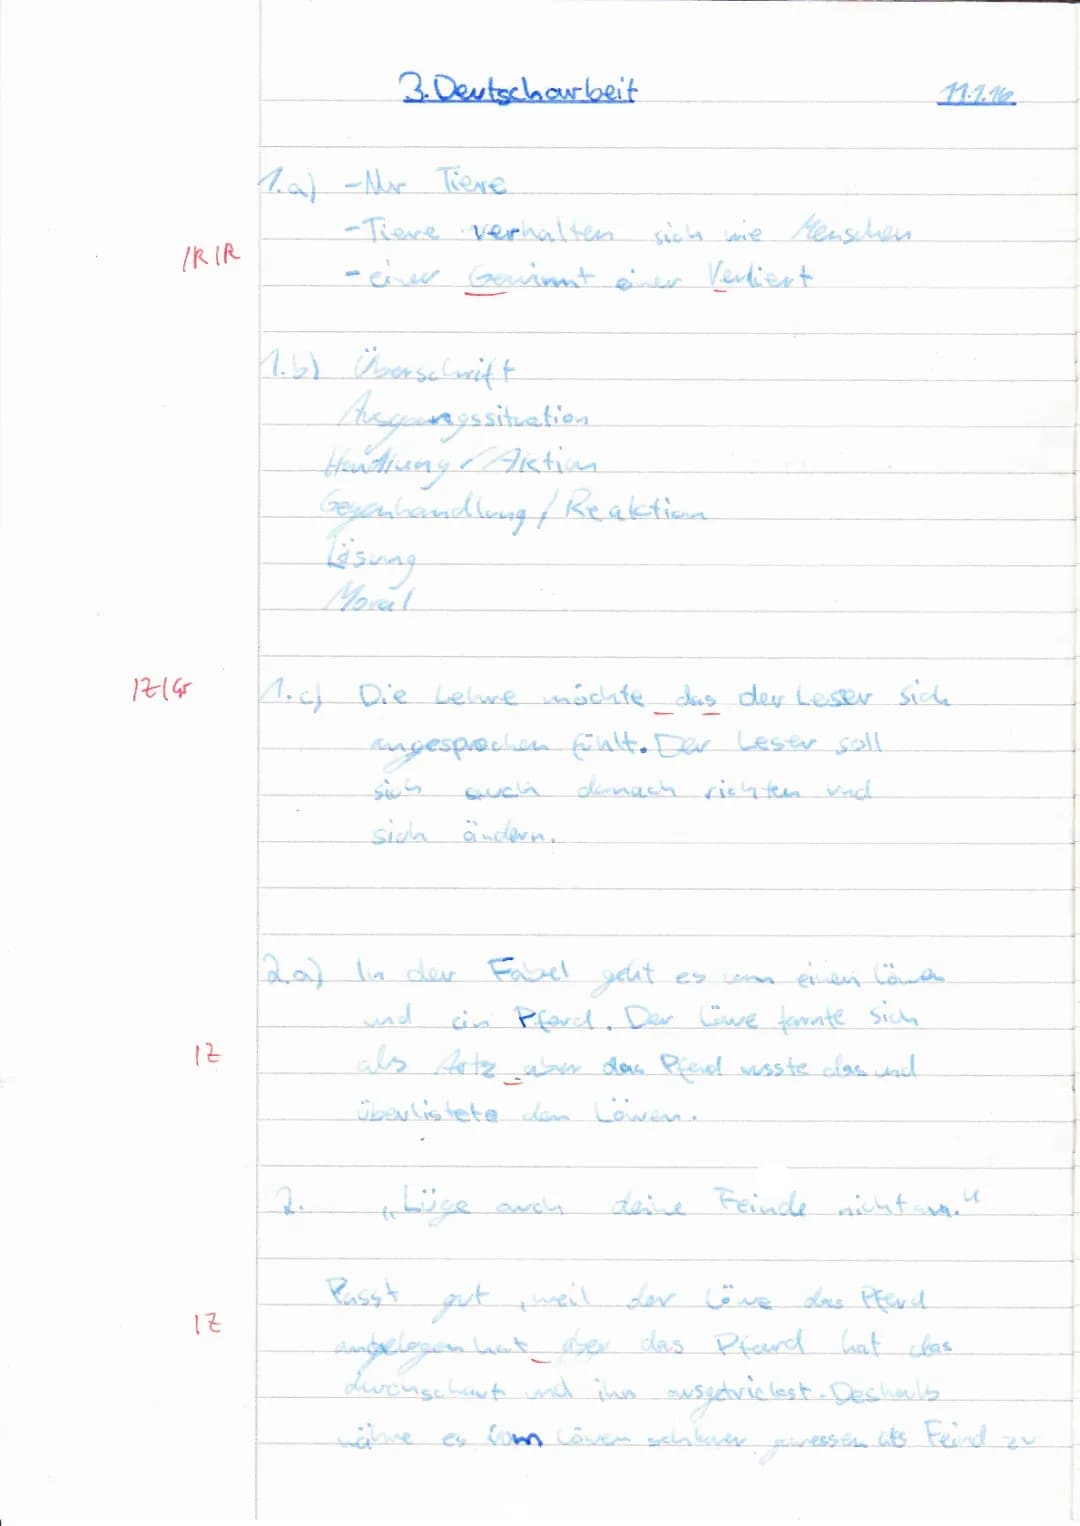 3. Deutscharbeit 11.1.16
1.a) -Nur Tiere
-Tiere verhalten sich wie Menschen
/R /R -einer Gewinnt einer Verliert
1.b) Überschrift
Ausgangssituation
Handlung / Aktion
Gegenhandlung / Reaktion
Lösung
Moral
/Z /Gr 1.c) Die Lehre möchte das der Leser sich
angesprochen fühlt. Der Leser soll
sich auch danach richten und
sich ändern.
2.a) In der Fabel geht es um einen Löwen
und ein Pferd. Der Löwe tarnte sich
/Z als Artz aber das Pferd wusste das und
überlistete den Löwen.
2. „Lüge auch deine Feinde nicht an."
Passt gut, weil der Löwe das Pferd
/Z angelogen hat aber das Pferd hat das
durchschaut und ihn ausgetrickst. Deshalb
es vom Löwen als Feind zu